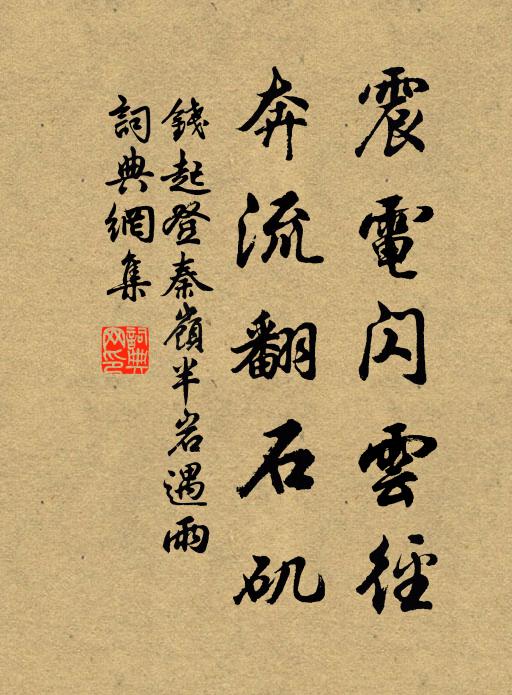 震電閃雲徑
奔流翻石矶
錢起登秦嶺半岩遇雨
詞典網集
詞典網印